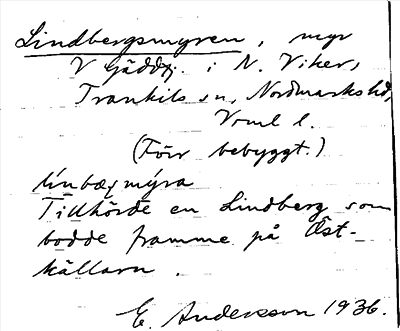 Lindbergsmyren, myr
V Gäddtj. i N. Viker,
Trankils sn, Nordmarks hd,
Vrml l.
(Förr bebyggt.)
línbæṣmýra
Tillhörde en Lindberg som
bodde framme på Öst-
källarn.
E. Andersson 1936.